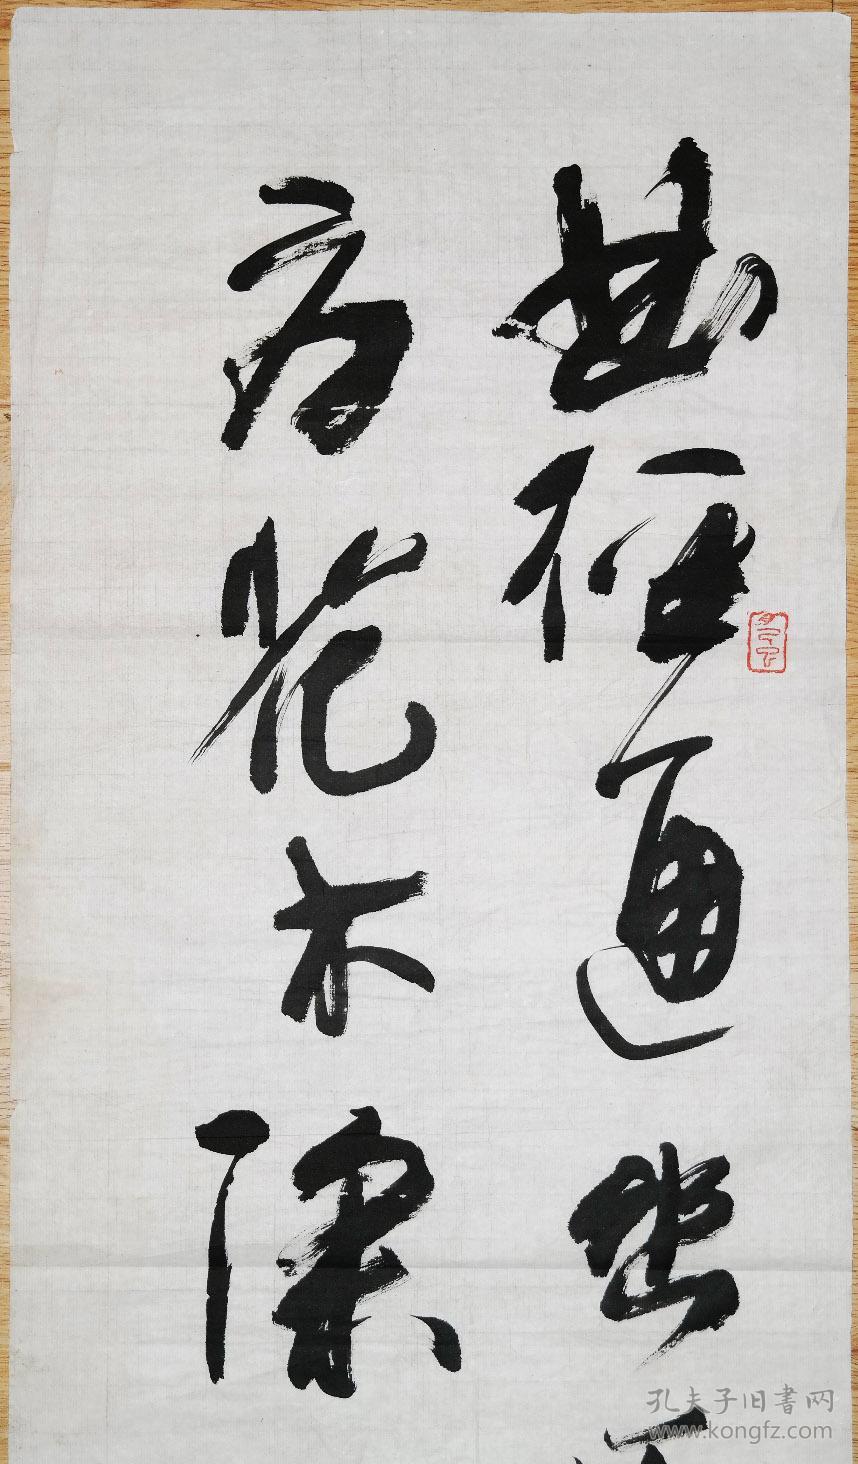 曲径通幽
房花木深
孔夫子旧書网
www.kongfz.com